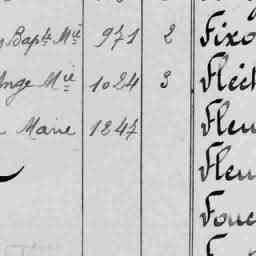 Bapt. Mie 971 2 Fixo
Ange Mie 1024 3 Fleih
Marie 1247 Fleu
Fleu
Foue